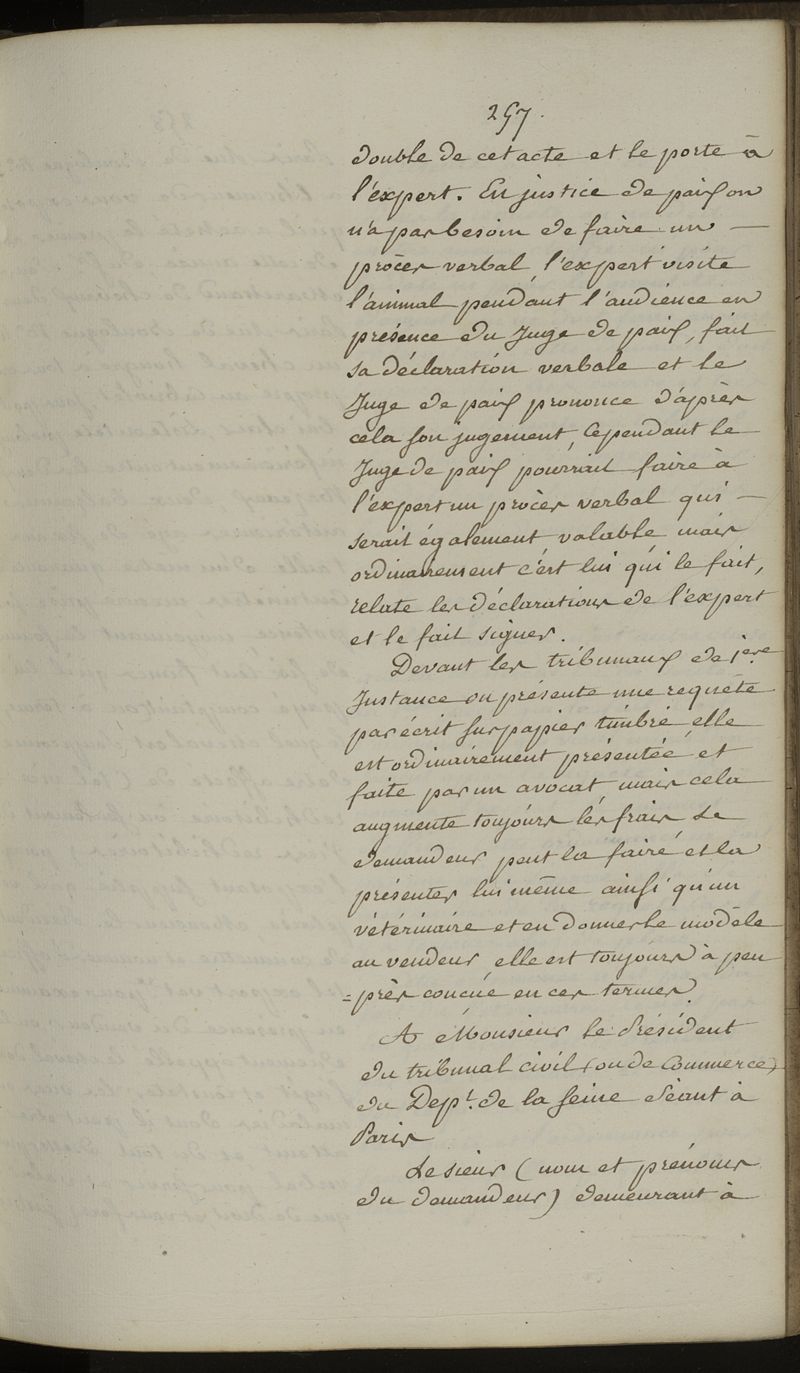 257.
double de cet acte et le porte à
l'éxpert. En justice de paix on
n'a pas besoin de faire un —
procès verbal, l'expert visite
l'animal pendant l'audience en
présence du Juge de paix, fait
sa déclaration verbale et le
Juge de paix prononce d'après
cela son jugement, Cependant le
Juge de paix pourrait faire à
l'expert un procès verbal qui —
serait également valable mais
ordinairement c'est lui qui le fait,
relate les déclarations de l'expert
et le fait signer.
Devant les tribunaux de 1ere
Instance on présente une requête
par écrit sur papier timbré, elle
est ordinairement présentée et
faite par un avocat, mais cela
augmente toujours les frais Le
demandeur peut la faire et la
présenter lui même ainsi qu'un
vétérinaire et en donner le modèle
au vendeur, elle est toujours à peu
=près concue en ces termes.
A Monsieur le Président
du tribunal civil (ou de Commerce)
du Dept. de la Seine Séant à
Paris
Le sieur (nom et prénoms
du demandeur) demeurant à